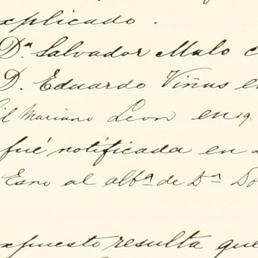 explicado.
Dª Salvador Malo c
D. Eduardo Viñas e
il Mariano Leon en 19.
fué notificada en
Esno al albª de Dª Do
xpuesto resulta que